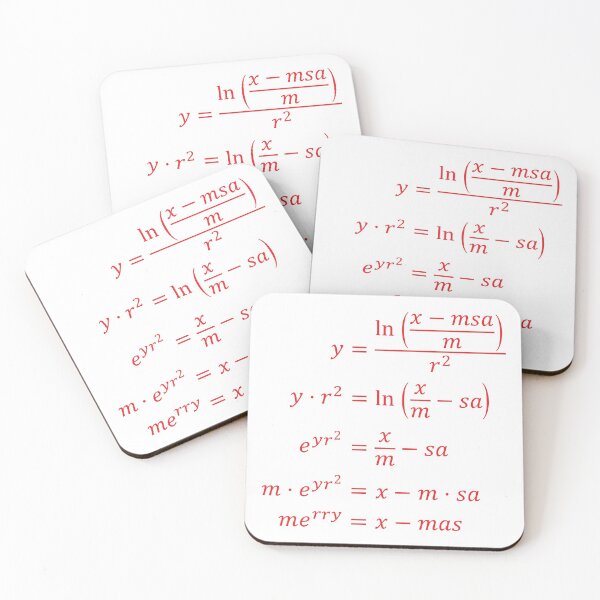 y = ln((x − msa)/m)/r²
y · r² = ln(x/m − sa
sa
y = ln((x − msa)/m)/r²
y · r² = ln(x/m − sa)
e^(yr²) = x/m − sa
a
y = ln((x − msa)/m)/r²
y · r² = ln(x/m − sa)
e^(yr²) = x/m − s
m · e^(yr²) = x −
me^(rry) = x
y = ln((x − msa)/m)/r²
y · r² = ln(x/m − sa)
e^(yr²) = x/m − sa
m · e^(yr²) = x − m · sa
me^(rry) = x − mas